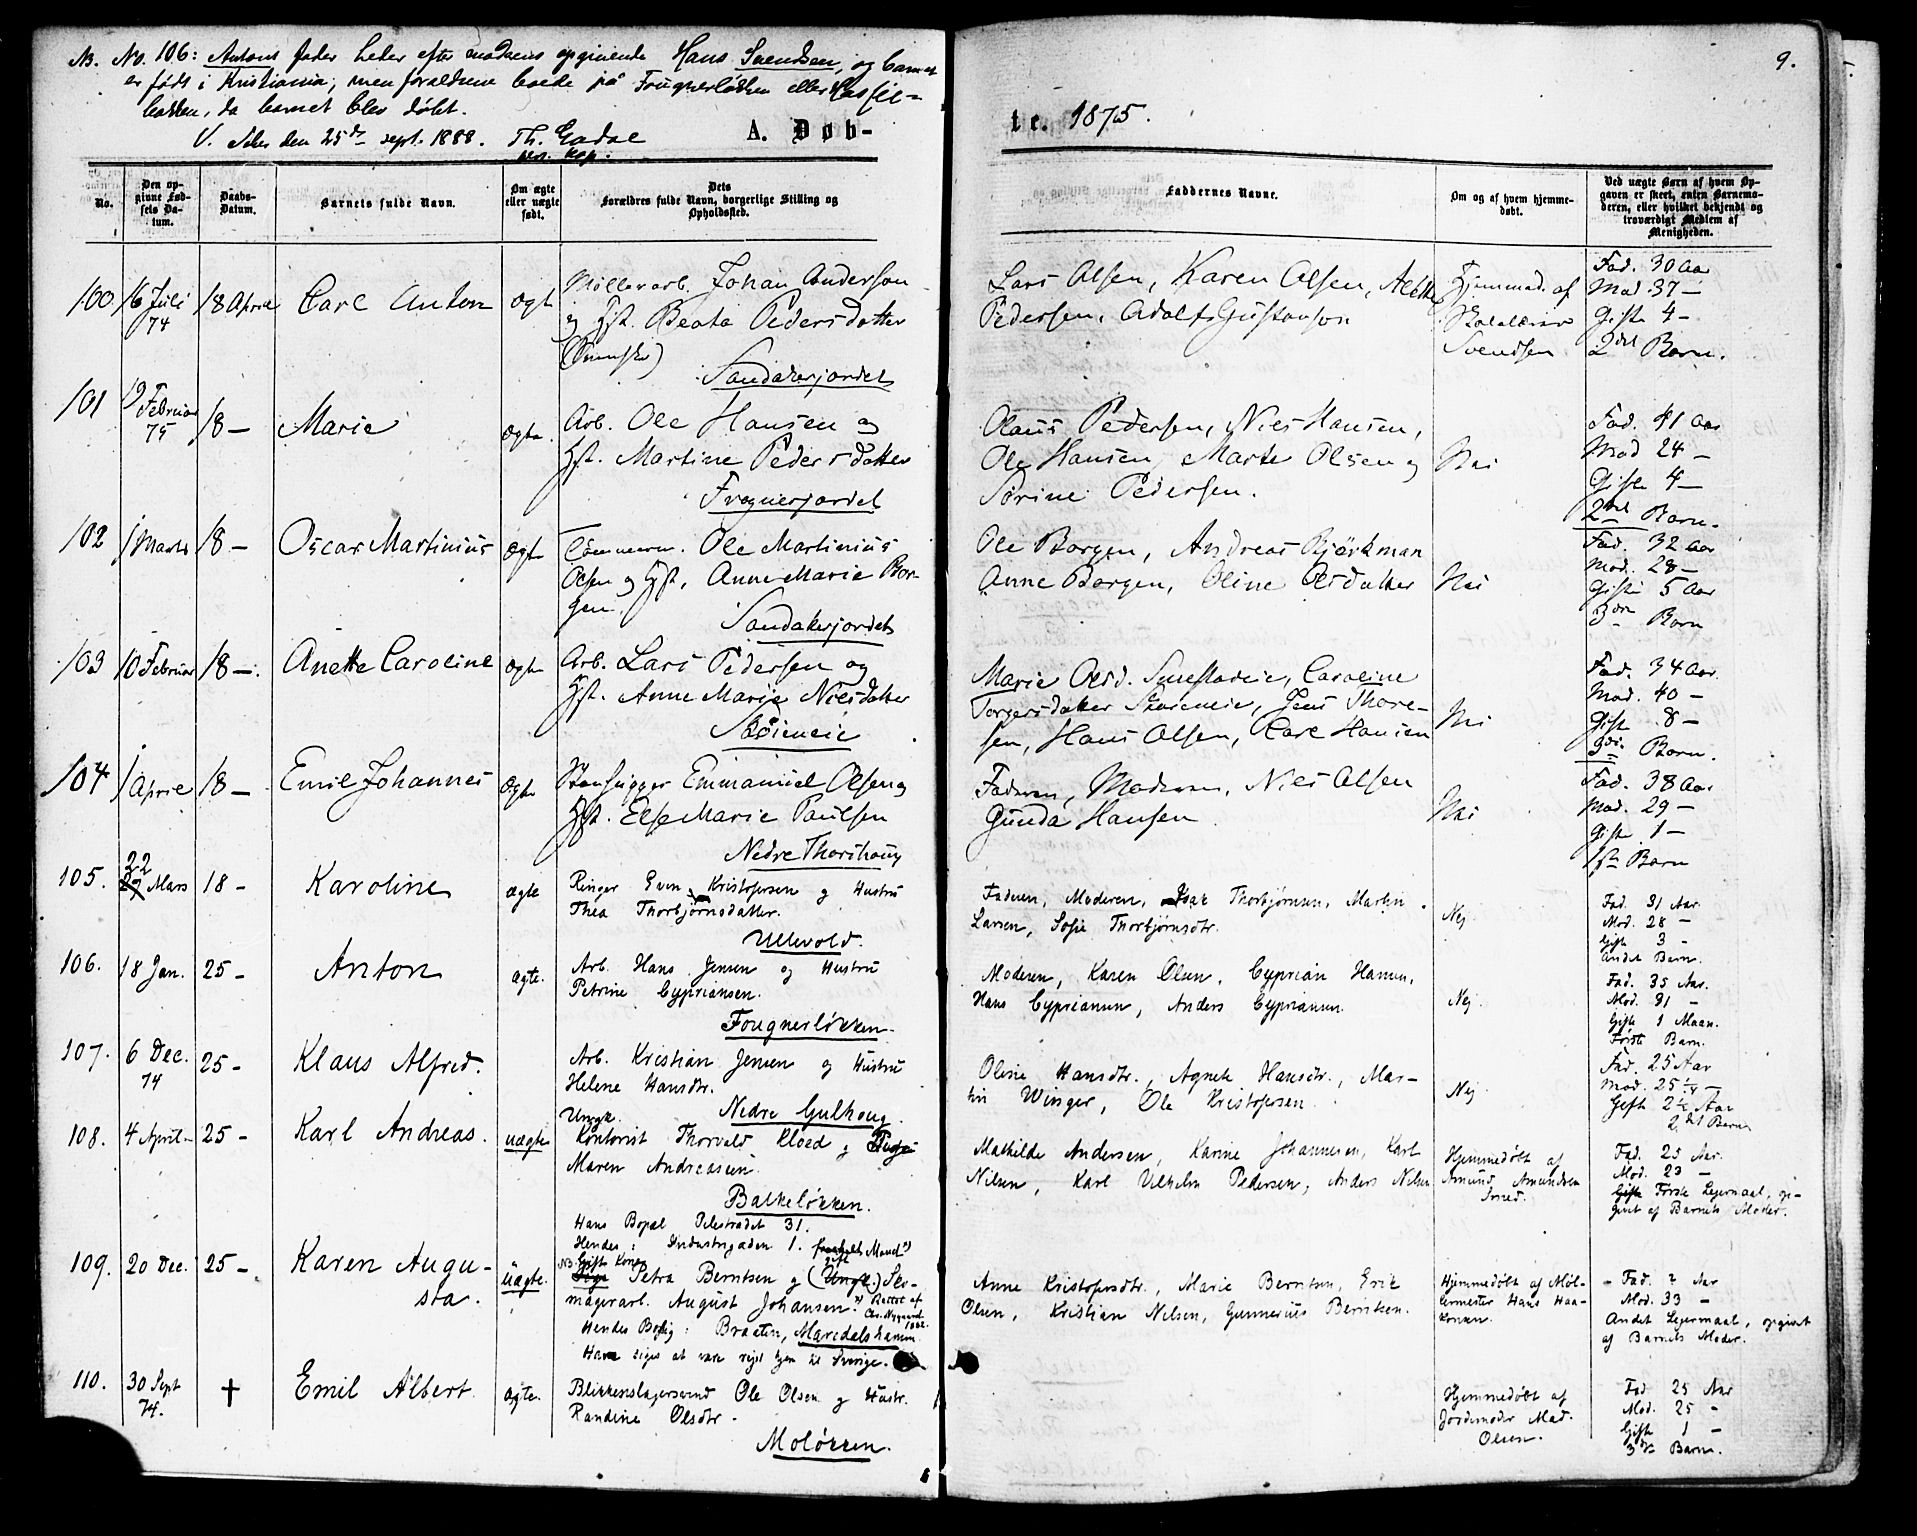 NB. No. 106: Antons Fader heder efter moderens opgivende Hans Svendsen, og barnet
er født i Kristiania, men forældrene boede på Fougnerløkken eller Hasle-
bakken, da barnet blev døbt.
V. Aker den 25de sept. 1888. Th. Gadae
pers. Kap.
A. Døb-
te. 1875.
9.
No.
Den op-
givne Fød-
sels Da-
tum.
Daabs-
Datum.
Barnets fulde Navn.
Om ægte
eller uægte
født.
Dets
Forældres fulde Navn, borgerlige Stilling og
Opholdssted.
Faddernes Navne.
Om og af hvem hjemme-
døbt.
Ved uægte Børn af hvem Op-
gaven er skeet, enten Barnemo-
deren, eller hvilket bekjendt og
troværdigt Medlem af
Menigheden.
100 16 Juli
74
18 April
Carl Anton
ægte
Møllerarb. Johan Anderson
og Hst. Beata Pedersdatter
(Svenske)
Sandakerjordet
Lars Olsen, Karen Olsen, Alette
Pedersen, Adolf Gustavson
Hjemmed. af
Skolelærer
Svendsen
Fad. 30 Aar
Mod 37 -
Gifte 4 -
2det Barn.
101 19 Februar
75
18 -
Marie
ægte.
Arb. Ole Hansen og
Hst. Martine Pedersdatter
Frognerjordet
Olaus Pedersen, Niels Hansen,
Ole Hansen, Marte Olsen og
Sørine Pedersen.
Nei
Fad. 41 Aar
Mod 24 -
Gifte 4 -
2det Barn.
102 1 Marts 18 -
Oscar Martinius
ægte
Tømmerm. Ole Martinius
Olsen og Hst. Anne Marie Bor-
gen.
Sandakerjordet
Ole Borgen, Andreas Bjørkman
Anne Borgen, Oline Olsdatter
Nei
Fad. 32 Aar
Mod. 28 -
Gifte 5 Aar
3die Barn
103 10 Februar 18 -.
Anette Caroline
ægte
Arb. Lars Pedersen og
Hst. Anne Marie Nielsdatter
Støieneie
Marie Olsd. Støeneie, Caroline
Torgersdatter Støreneie, Jens Thore-
sen, Hans Olsen, Carl Hansen
Nei
Fad. 34 Aar.
Mod. 40 -
Gifte 8 -
3die Barn.
104 1 April 18 -
Emil Johannes
ægte
Stenhugger Emmanuel Olsen og
Hst. Else Marie Paulsen
Nedre Thorshoug
Faderen, Moderen, Niels Olsen
Gunda Hansen
Nei
Fad. 38 Aar
Mod. 29 -
Gifte 1 -
1ste Barn
105. 22 Mars 18 -
Karoline
ægte
Ringer Even Kristofersen og Hustru
Thea Thorbjørnsdatter.
Ullevold.
Faderen, Moderen, Isak Thorbjørnsen, Martin
Larsen, Sofie Thorbjørnsdtr.
Nej
Fad. 31 Aar.
Mod. 28 -
Gifte 3 -
andet Barn.
106. 18 Jan. 25 -
Anton
ægte.
Arb. Hans Jensen og Hustru
Petrine Cypriansen.
Fougnerløkken.
Moderen, Karen Olsen, Cyprian Hansen,
Hans Cypriansen, Anders Cypriansen.
Nej.
Fad. 35 Aar.
Mod. 31 -
Gifte 1 Maan.
Første Barn.
107. 6 Dec.
74
25 -
Klaus Alfred.
Arb. Kristian Jensen og Hustru
Helene Hansdtr.
Nedre Gulhoug.
Oline Hansdtr., Agnete Hansdtr., Mar-
tin Winger, Ole Kristofersen.
Nej
Fad. 25 Aar
Mod. 25 1/4 -
Gifte 2 1/2 Aar
2det Barn
108. 4 April - 25 -
Karl Andreas.
uægte
Ungk.
Kontorist Thorvald Kloed og Pige
Maren Andreasen.
Balkeløkken.
Hans Bopæl Pilestrædet 31.
Hendes: Industrigaden 1.
Mathilde Andersen, Karine Johannesen, Karl
Nilsen, Karl Vilhelm Pedersen, Anders Nilsen
Hjemmedøbt af
Amund Amundsen
Smed.
Fad. 25 Aar.
Mod. 23 -
Gifte Første Lejermaal, opgi-
givet af Barnets Moder.
109. 20 Dec. 25 -
Karen Augu-
sta.
uægte.
fraskilt Mand x)
NB. Gift Kone gift
Pige Petra Berntsen og (Ungk.) Sko-
magerarb. August Johansen. x) Rettet af
Chr. Nygaard 1882.
Hendes Bolig: Braaten, Maridalshamm.
Han siges at være rejst hjem til Sverige.
Anne Kristofersdtr., Marie Berntsen, Erik
Olsen, Kristian Nilsen, Gunnerius Berntsen.
Hjemmedøbt af Møl-
lermester Hans Haa-
konsen.
- Fad. ? Aar
Mod. 33 -
Andet Lejermaal, opgivet
af Barnets Moder.
110. 30 Sept
74.
†
Emil Albert
ægte.
Blikkenslagersvend Ole Olsen og Hustr.
Randine Olsdtr.
Moløkken.
Hjemmedøbt af
Jordemoder Mad.
Olsen.
Fad 25 Aar
Mod. 25 -
Gifte 1 -
3die Barn.